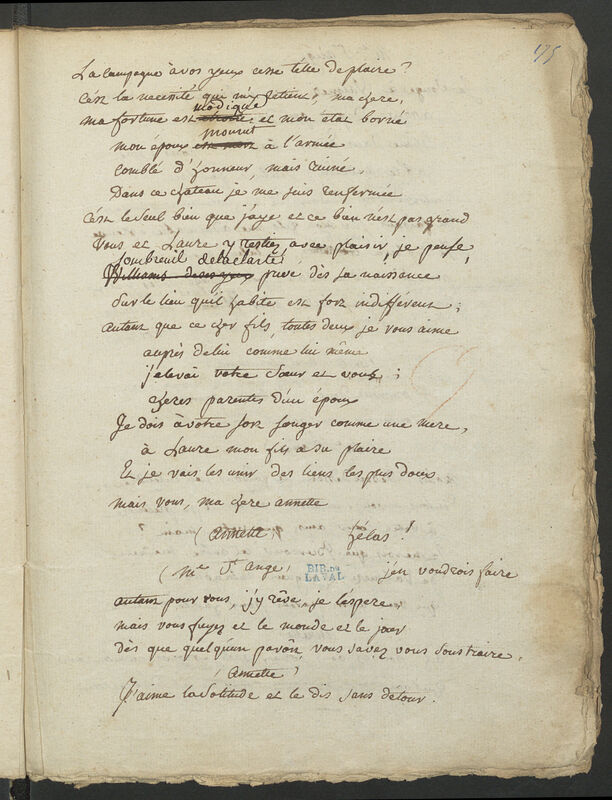 175
La Campagne à vos yeux cesse t'elle de plaire?
C'est la necesité qui m'y retient, ma chere,
modique
ma fortune est étroite, et mon etat borné
mourut
mon époux est mort à l'armée
Comblé d'honneur, mais ruiné,
Dans ce chateau je me suis renfermée
C'est le seul bien que j'aye et ce bien n'est pas grand
Vous et Laure y restiez avec plaisir, je pense,
Sombreuil de la clarté
Williams de ses yeux privé dès sa naissance
Sur le lieu qu'il habite est fort indifférent;
autant que ce cher fils, toutes deux je vous aime
auprès de lui comme lui même
j'elevai votre Sœur et vous;
cheres parentes d'un époux
Je dois à votre sort songer comme une mere,
à Laure mon fils a su plaire
Et je vais les unir des liens les plus doux
mais vous, ma chere annette
(annette) hélas!
(Me St ange)
BIB. DE LAVAL
j'en voudrois faire
autant pour vous, j'y rêve, je l'espere
mais vous fuyez et le monde et le jour
dès que quelqu'un paroît, vous savez vous soustraire.
(annette)
J'aime la Solitude et le dis sans détour.